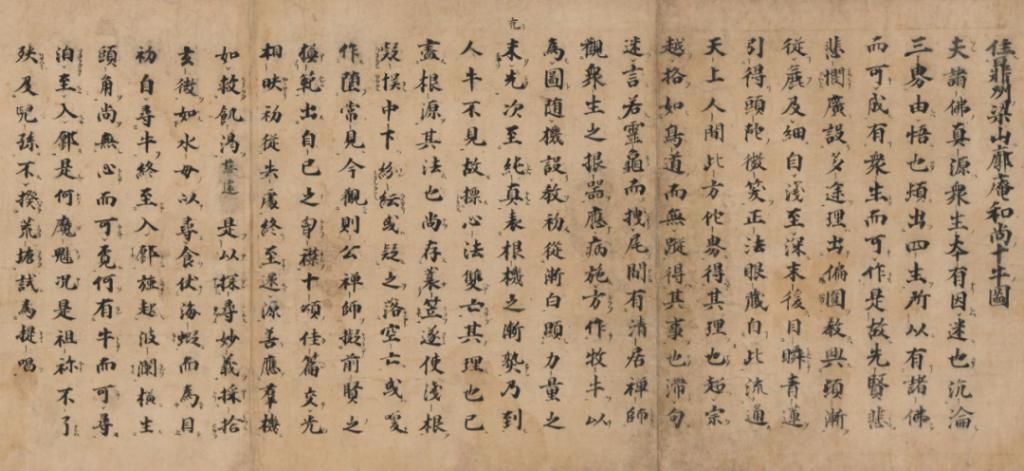 住鼎州梁山廓庵和尚十牛圖
夫諸佛真源衆生本有因迷也沉淪
三界由悟也頓出四生所以有諸佛
而可成有衆生而可作是故先賢悲
悲憫廣設多途理出偏圓教興頓漸
從麁及細自淺至深末後目瞬青蓮
引得頭陀微笑正法眼藏自此流通
天上人間此方他界得其理也超宗
越格如鳥道而無蹤得其事也滞句
迷言若靈龜而拽尾間有清居禪師
觀衆生之根器應病施方作牧牛以
為圖随機設教初從漸白顯力量之
未充次至純真表根機之漸熟乃到
人牛不見故標心法雙亡其理也已
盡根源其法也尚存莎笠遂使淺根
疑悮中下紛紜或疑之落空亡或喚
作墮常見今觀則公禪師擬前賢之
模範出自己之胷襟十頌佳篇交光
相映初從失處終至還源善應羣機
如救飢渴慈遠是以探尋妙義採拾
玄微如水母以尋食仗海蝦而為目
初自尋牛終至入鄽強起波瀾橫生
頭角尚無心而可覓何有牛而可尋
洎至入鄽是何魔魅况是祖祢不了
殃及兒孫不揆荒塘試為提唱